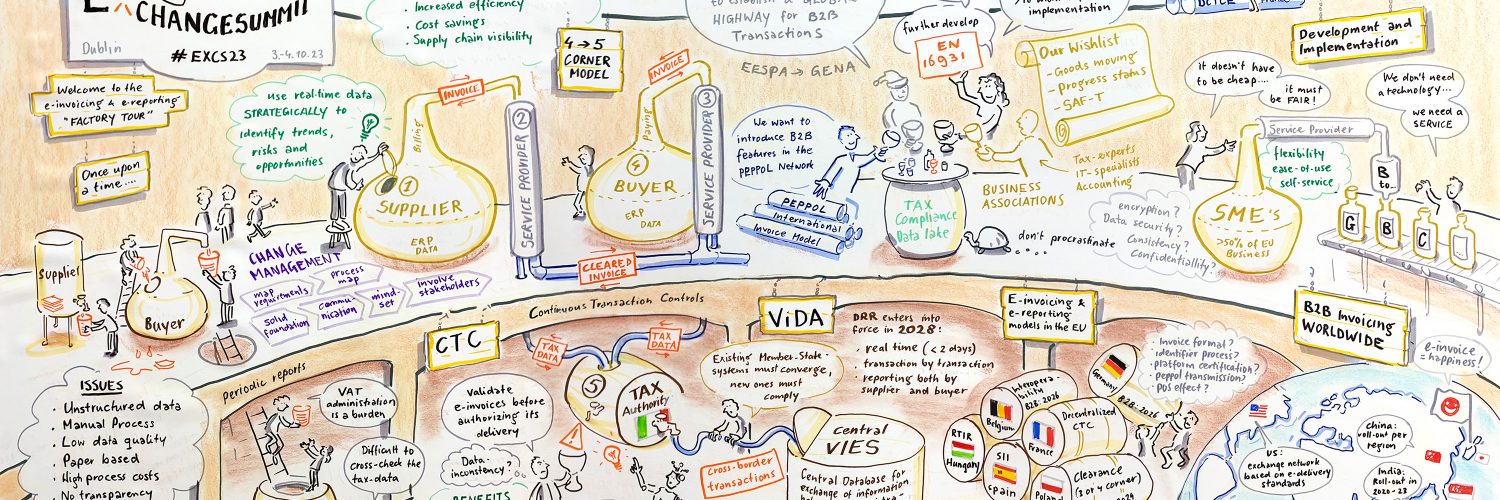 CHANGESUMMIT
Dublin
#EXCS23
3.-4.10.23
Welcome to the
e-invoicing & e-reporting
"FACTORY TOUR"
Once upon
a time....
· Increased efficiency
· Cost savings
· Supply chain visibility
use real-time data
STRATEGICALLY to
identify trends,
risks and
opportunities
Supplier
Buyer
CHANGE
MANAGEMENT
map
requirements
process
map
involve
stakeholders
solid
foundation
commu-
nication
mind-
set
Billing
1
SUPPLIER
ERP
DATA
INVOICE
2
SERVICE PROVIDER
4→5
CORNER
MODEL
INVOICE
Paying
4
BUYER
ERP
DATA
3
SERVICE PROVIDER
CLEARED
INVOICE
HIGHWAY for B2B
Transactions
EESPA → GENA
We want to
introduce B2B
features in the
PEPPOL Network
PEPPOL
International
Invoice Model
further develop
EN
16931
implementation
Our Wishlist
- Goods moving
- Progress status
- SAF-T
TAX
Compliance
Data lake
BUSINESS
ASSOCIATIONS
Tax-experts
IT-spesialists
Accounting
don't procrastinate
encryption?
Data security?
Consistency?
Confidentiallity?
Development and
Implementation
it doesn't have
to be cheap...
it must
be FAIR!
We don't need
a technology...
we need a
SERVICE
Service Provider
flexibility
ease-of-use
self-service
SME's
>50% of EU
Business
B
to...
G
B
C
...
ISSUES
· Unstructured data
· Manual Process
· Low data quality
· Paper based
· High process costs
· No transparency
periodic reports
VAT
administration
is a burden
Difficult to
cross-check the
tax-data
CTC
Continuous Transaction Controls
Validate
e-invoices before
authorizing its
delivery
Data-
inconstency?
BENEFITS
TAX
DATA
TAX
DATA
5
TAX
Authority
ViDA
Existing Member-State-
systems must converge,
new ones must
comply
DRR enters into
force in 2028:
· real time (<2 days)
· transaction by transaction
· reporting both by
supplier and buyer
Cross-border
transactions
Central
VIES
Central Database for
exchange of information
E-invoicing &
e-reporting
models in the EU
Interopera-
bility
B2B: 2026
Belgium
Germany
B2B-2026
RTIR
Hungary
France
Decentralized
CTC
SII
Spain
Poland
Clearance
(3 or 4 corner)
· Invoice formal?
· identifier process?
· platform certification?
· peppol transmission?
· PDS effect?
B2B Invoicing
WORLDWIDE
e-invoice
= happiness!
US:
exchange network
based on e-delivery
standards
China:
roll-out per
region
India:
Roll-out in
2020-23